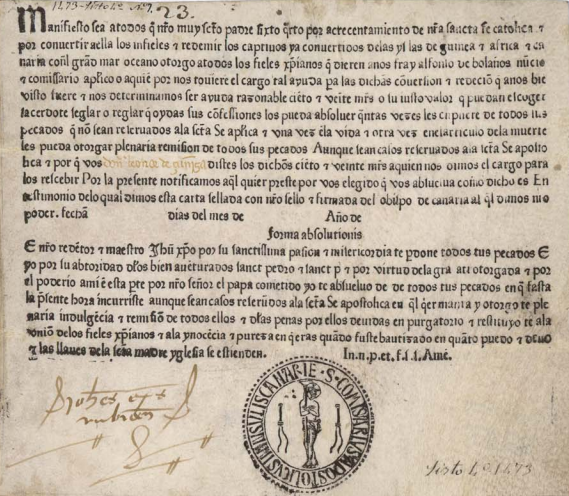 1473 23.
Manifiesto sea a todos q̃ nr̃o muy sctõ padre sixto q̃rto por acrecentamiento de nr̃a sancta fe catholica ⁊
por conuertir aella los infieles ⁊ redemir los captiuos ya conuertidos delas yslas de guinea ⁊ africa ⁊ ca
naria con l grãd mar oceano otorgo atodos los fieles xp̃ianos q̃ dieren anos fray alfonso de bolaños nũcio
⁊ comissario ap̃lico o aquiẽ por nos touiere el cargo tal ayuda pa las dichãs cõuersiõn ⁊ redeciõ q̃ anos biẽ
visto fuere ⁊ nos determinamos ser ayuda razonable ciẽto ⁊ veĩte mr̃s o su iusto valor q̃ puedan escoger
sacerdote seglar o reglar q̃ oydas sus cõfessiones los pueda absoluer q̃ntas vezes les cũpliere de todos sus
pecados q̃ nõ sean reseruados ala sctã Se ap̃lica ⁊ vna vez ẽla vida ⁊ otra vez enelarticulo dela muerte
les pueda otorgar plenaria remision de todos sus pecados Aunque sean calos reseruados ala sctã Se apostoli
ca ⁊ por q̃ vos distes los dichos ciẽto ⁊ veinte mr̃s aquien nos dimos el cargo para
los rescebir Por la presente notificamos aq̃l quier preste por vos elegido q̃ vos absuelua como dicho es En
testimonio delo qual dimos esta carta sellada con nr̃o sello ⁊ firmada del obispo de canaria al q̃l damos nr̃o
poder. fecha dias del mes de Año de
forma absolutionis
E nr̃o redẽtor ⁊ maestro Jhũ xp̃o por su sanctissima pasion ⁊ misericordia te p̃done todos tus pecados E
yo por su abtoridad ⁊ dlos bien auẽturados sanct pedro ⁊ sanct p ⁊ por virtud dela grã ati otorgada ⁊ por
el poderio ami ẽ esta pte por nr̃o señor el papa cometido yo te absueluo de de todos tus pecados en q̃ fasta
la p̃sente hora incurriste aunque sean casos reseruados ala sctã Se apostolica eu q̃l q̃er manera y otorgo te ple
naria indulgẽcia ⁊ remisiõ de todos ellos ⁊ dlas penas por ellos deuidas en purgatorio ⁊ restituyo te ala
vniõ delos fieles xp̃ianos ⁊ ala ynocẽcia ⁊ pureza en q̃ eras quãdo fuste bautizado en quãto puedo ⁊ deuo
⁊ las llaues dela sctã madre yglesia se estienden. In.n.p.et.f.s.s. Amẽ.
Sisto 4º 1473